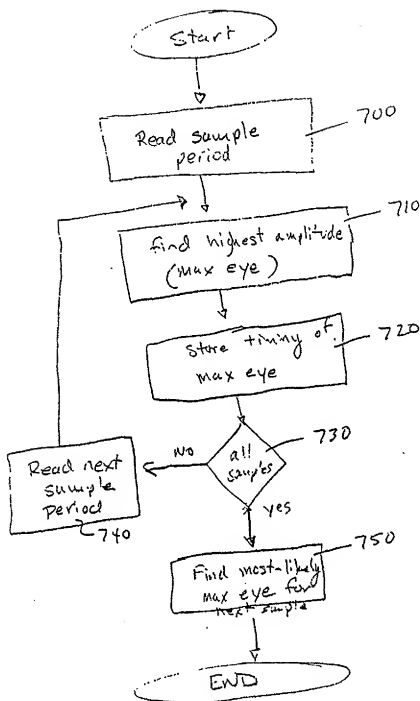 Start
Read sample
period
700
find highest amplitude
(max eye)
710
Store timing of
max eye
720
all
samples
730
NO
yes
Read next
sample
period
740
Find most-likely
max eye for
next sample
750
END